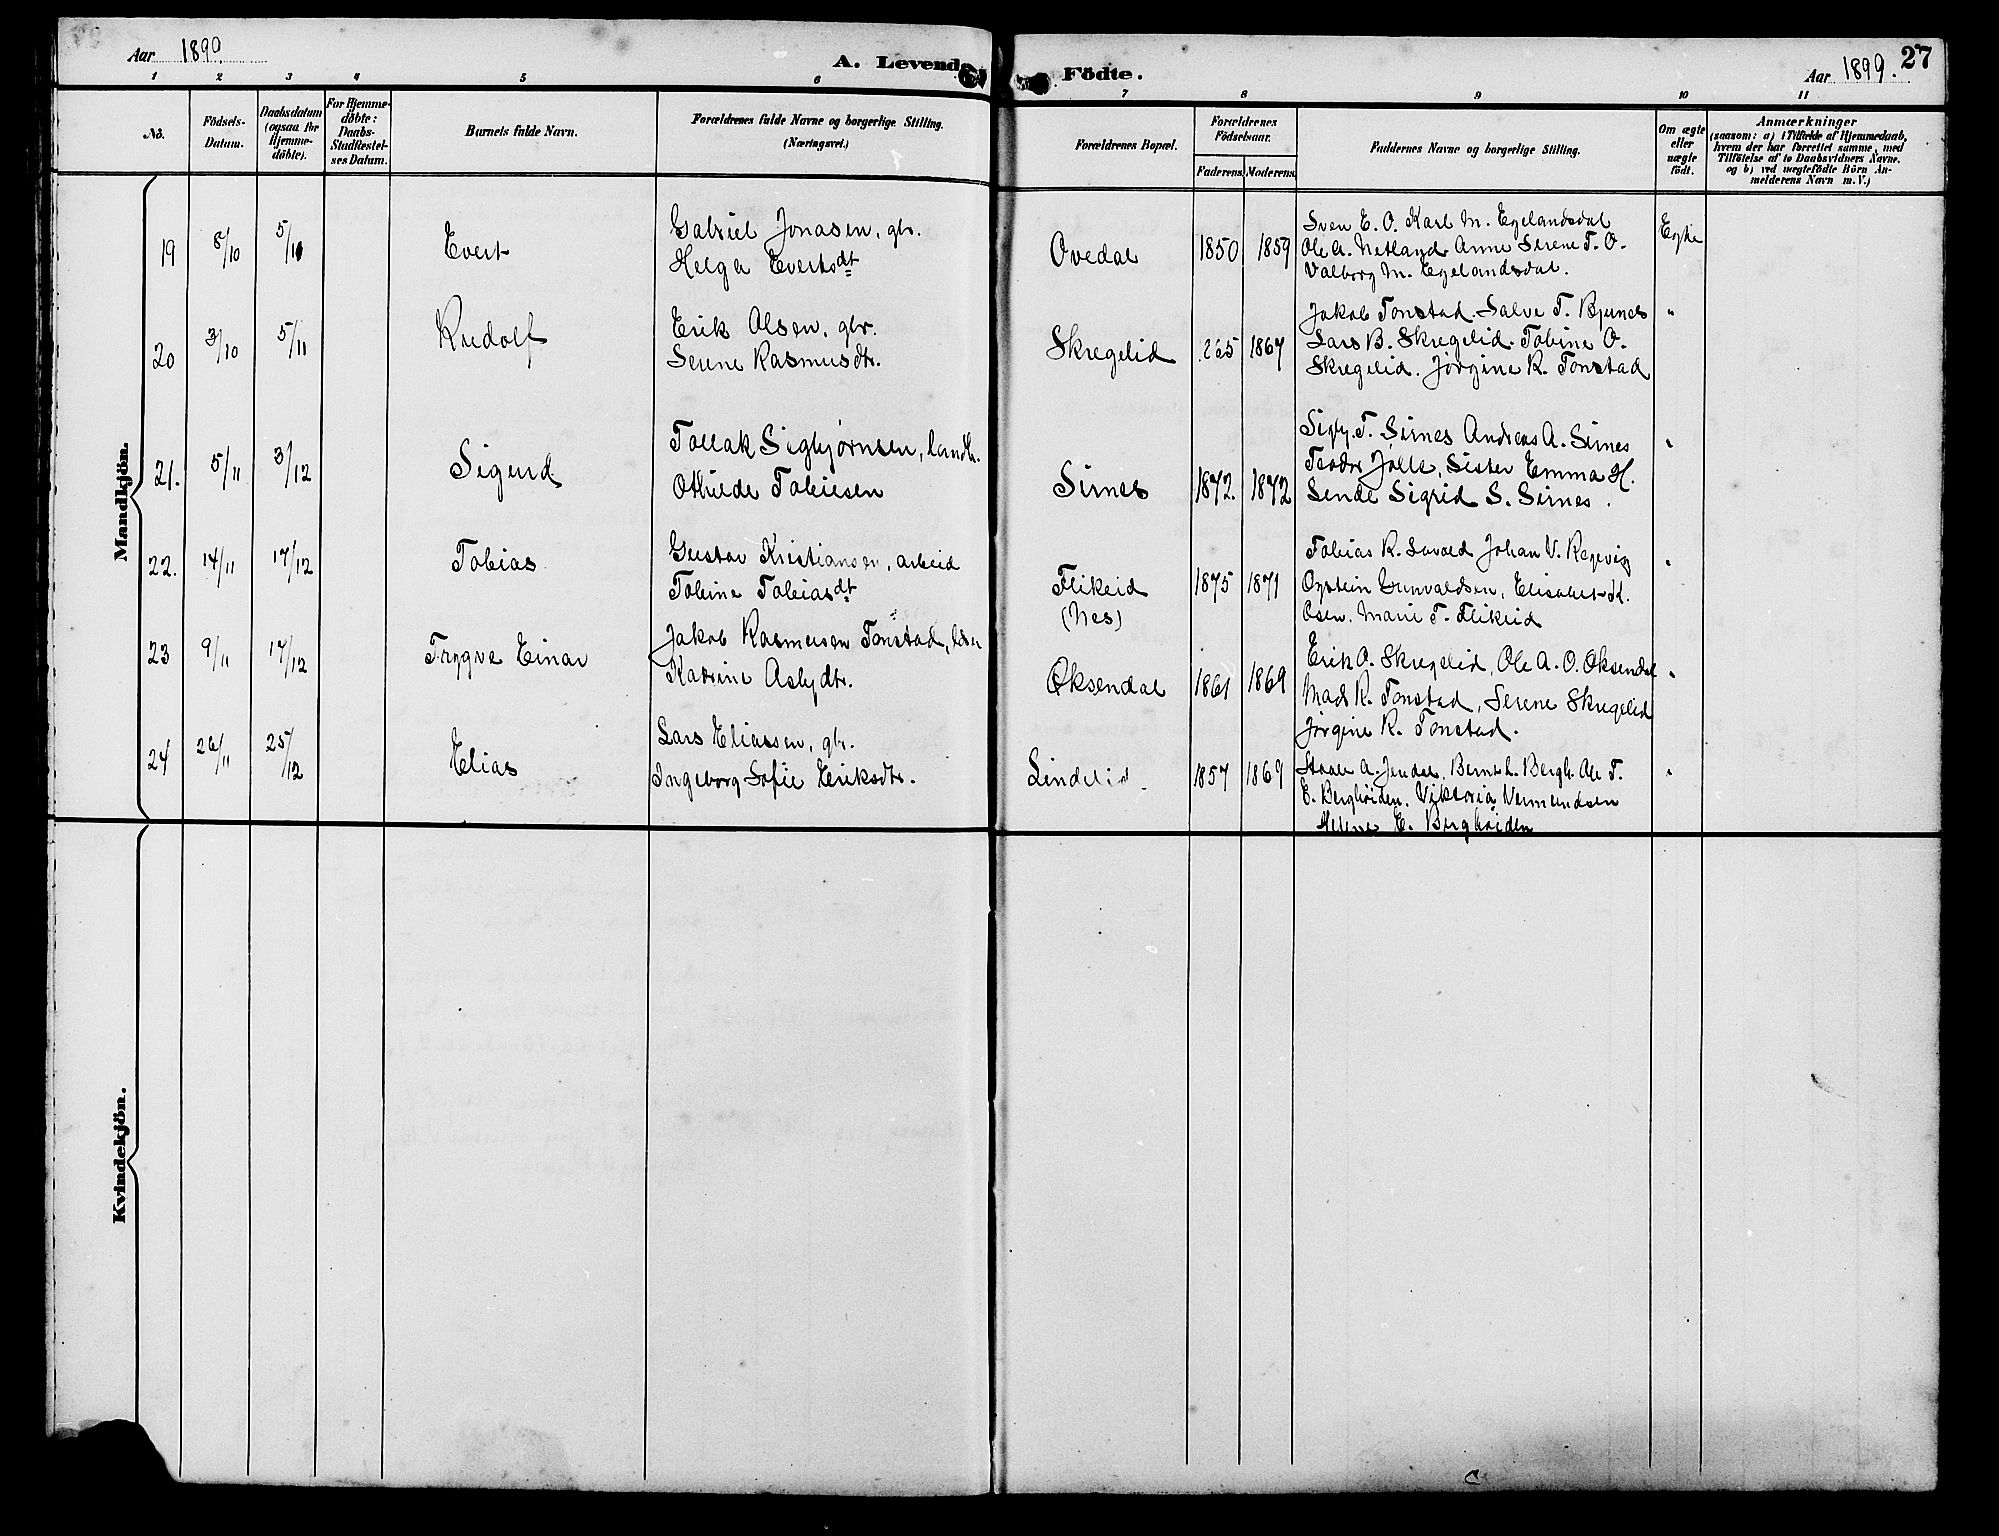 Aar 1899.
A. Levende
Födte.
Aar 1899.
27
1 2 3 4 5 6 7 8 9 10 11
No.
Födsels-
Datum.
Daabsdatum
(ogsaa for
Hjemme-
döbte).
For Hjemme-
döbte:
Daabs-
Stadfæstel-
ses Datum.
Barnets fulde Navn.
Forældrenes fulde Navne og borgerlige Stilling.
(Næringsvei.)
Forældrenes Bopæl.
Forældrenes
Födselsaar.
Faderens Moderens
Faddernes Navne og borgerlige Stilling.
Om ægte
eller
uægte
födt.
Anmærkninger
(saasom: a) i Tilfælde af Hjemmedaab,
hvem der har forrettet samme, med
Tilföielse af to Daabsvidners Navne.
og b) ved uægtefödte Börn An-
melderens Navn m. V.)
Mandkjön.
19 8/10 Evert
Gabriel Jonasen, gbr.
Helga Evertsdt
Ovedal 1850 1859
Sven E. O. Karl M. Egelandsdal
Ole A. Netland Anne Serene T. O.
Valborg M. Egelandsdal.
Egte
20 3/10 5/11 Rudolf
Erik Olsen, gbr.
Serene Rasmusdtr.
Skregelid 1867
Jakob Tonstad. Salve T. Bjunes
Lars B. Skregelid. Tobine O.
Skregelid. Jørgine R. Tonstad
"
21. 5/11 3/12 Sigurd
Tollak Sigbjørnsen, landh.
Othilde Tobiesen
Sirnes 1872. 1872
Sigbj. T. Sirnes Andreas A. Sirnes
Teodor Jølle, Sister Emma H.
Sende Sigrid S. Sirnes.
"
22. 14/11 17/12 Tobias
Gustav Kristiansen, arbeid
Tobine Tobiasdt
Flikeid
(Nes)
1875 1871
Tobias R. Johan V. Regevig
Oystein Gunvaldsen, Elisabet K.
Osen. Marie T. Flikeid
"
23 9/11 17/12 Trygve Einar
Jakob Rasmusen Tonstad,
Katrine Asbjdtr.
Øksendal 1861 1869
Erik O. Skregelid, Ole A. O. Øksendal
Mads R. Tonstad, Serene Skregelid
Jørgine R. Tonstad.
"
24 26/11 25/12 Elias
Lars Eliassen, gbr.
Ingeborg Sofie Eriksdtr.
Lindelid. 1857 1869
A. Bernt L. Bergh. Ole T.
E. Berghöiden. Viktoria Vermundsen
Helene E. Berghöiden
"
Kvindekjön.